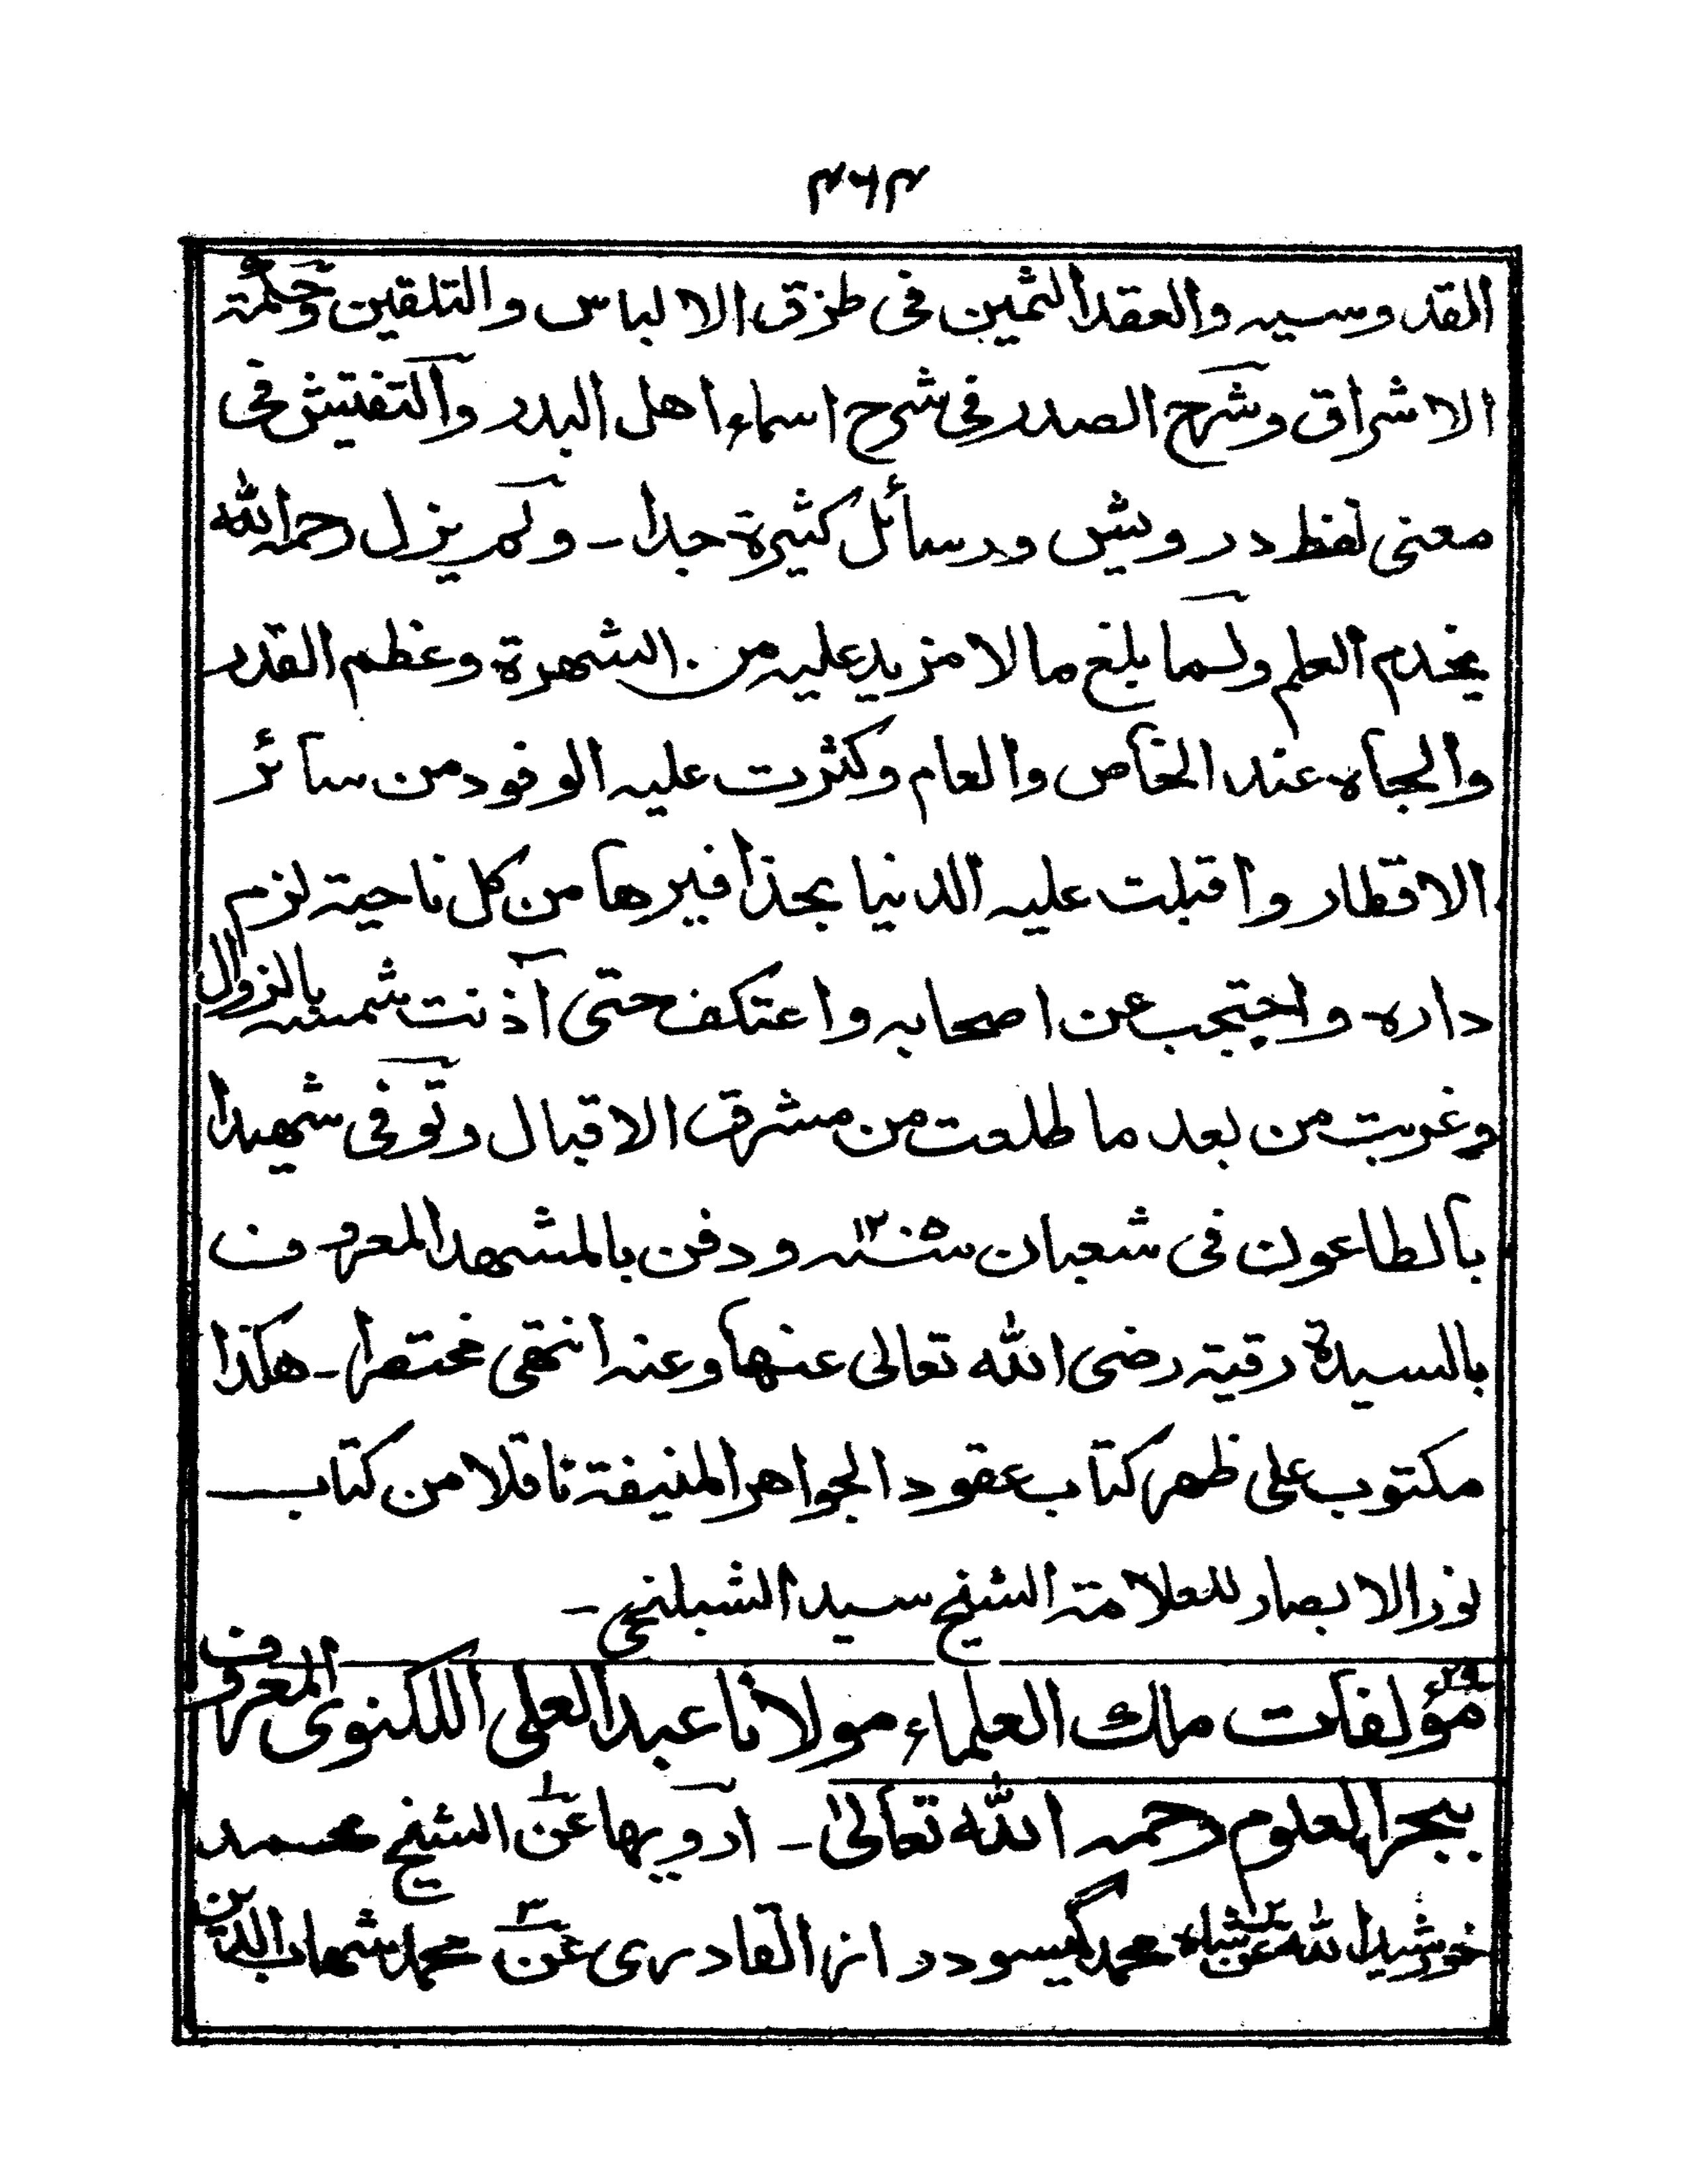 ۴۶۴
القدوسیہ والعقد الثمین فی طرق الالباس والتلقین وحکمۃ
الاشراق وشرح الصدر فی شرح اسماء اھل البدر والتفتیش فی
معنی لفظ درویش ورسائل کثیرۃ جدا۔ ولم یزل رحمہ اللہ
یخدم العلم ولما بلغ مالا مزید علیہ من الشھرۃ وعظم القدر
والجاہ عند الخاص والعام وکثرت علیہ الوفود من سائر
الاقطار واقبلت علیہ الدنیا بحذافیرھا من کل ناحیۃ لزم
دارہ واحتجب عن اصحابہ واعتکف حتی آذنت شمسہ بالزوال
وغربت من بعد ما طلعت من مشرق الاقبال وتوفی شھیدا
بالطاعون فی شعبان سنۃ ۱۲۰۵ ودفن بالمشھد المعروف
بالسیدۃ رقیۃ رضی اللہ تعالی عنھا وعنہ انتھی مختصرا۔ ھکذا
مکتوب علی ظھر کتاب عقود الجواھر المنیفۃ ناقلا من کتاب
نور الابصار للعلامۃ الشیخ سید الشبلنجی۔
۲۹ مؤلفات ملک العلماء مولانا عبد العلی اللکنوی المعروف
ببحر العلوم رحمہ اللہ تعالیٰ۔ ارویھا عن ۱ الشیخ محمد
خورشید اللہ عن ۲ شاہ محمد گیسو دراز القادری عن ۳ محمد شھاب الدین